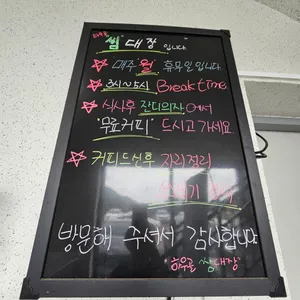 쌈대장 입니다.
☆ 매주 월 휴무일 입니다
☆ 3시~5시 Break time
☆ 식사후 잔디의자에서
'무료커피' 드시고 가세요
☆ 커피드신후 자리정리
방문해 주셔서 감사합니다
쌈대장